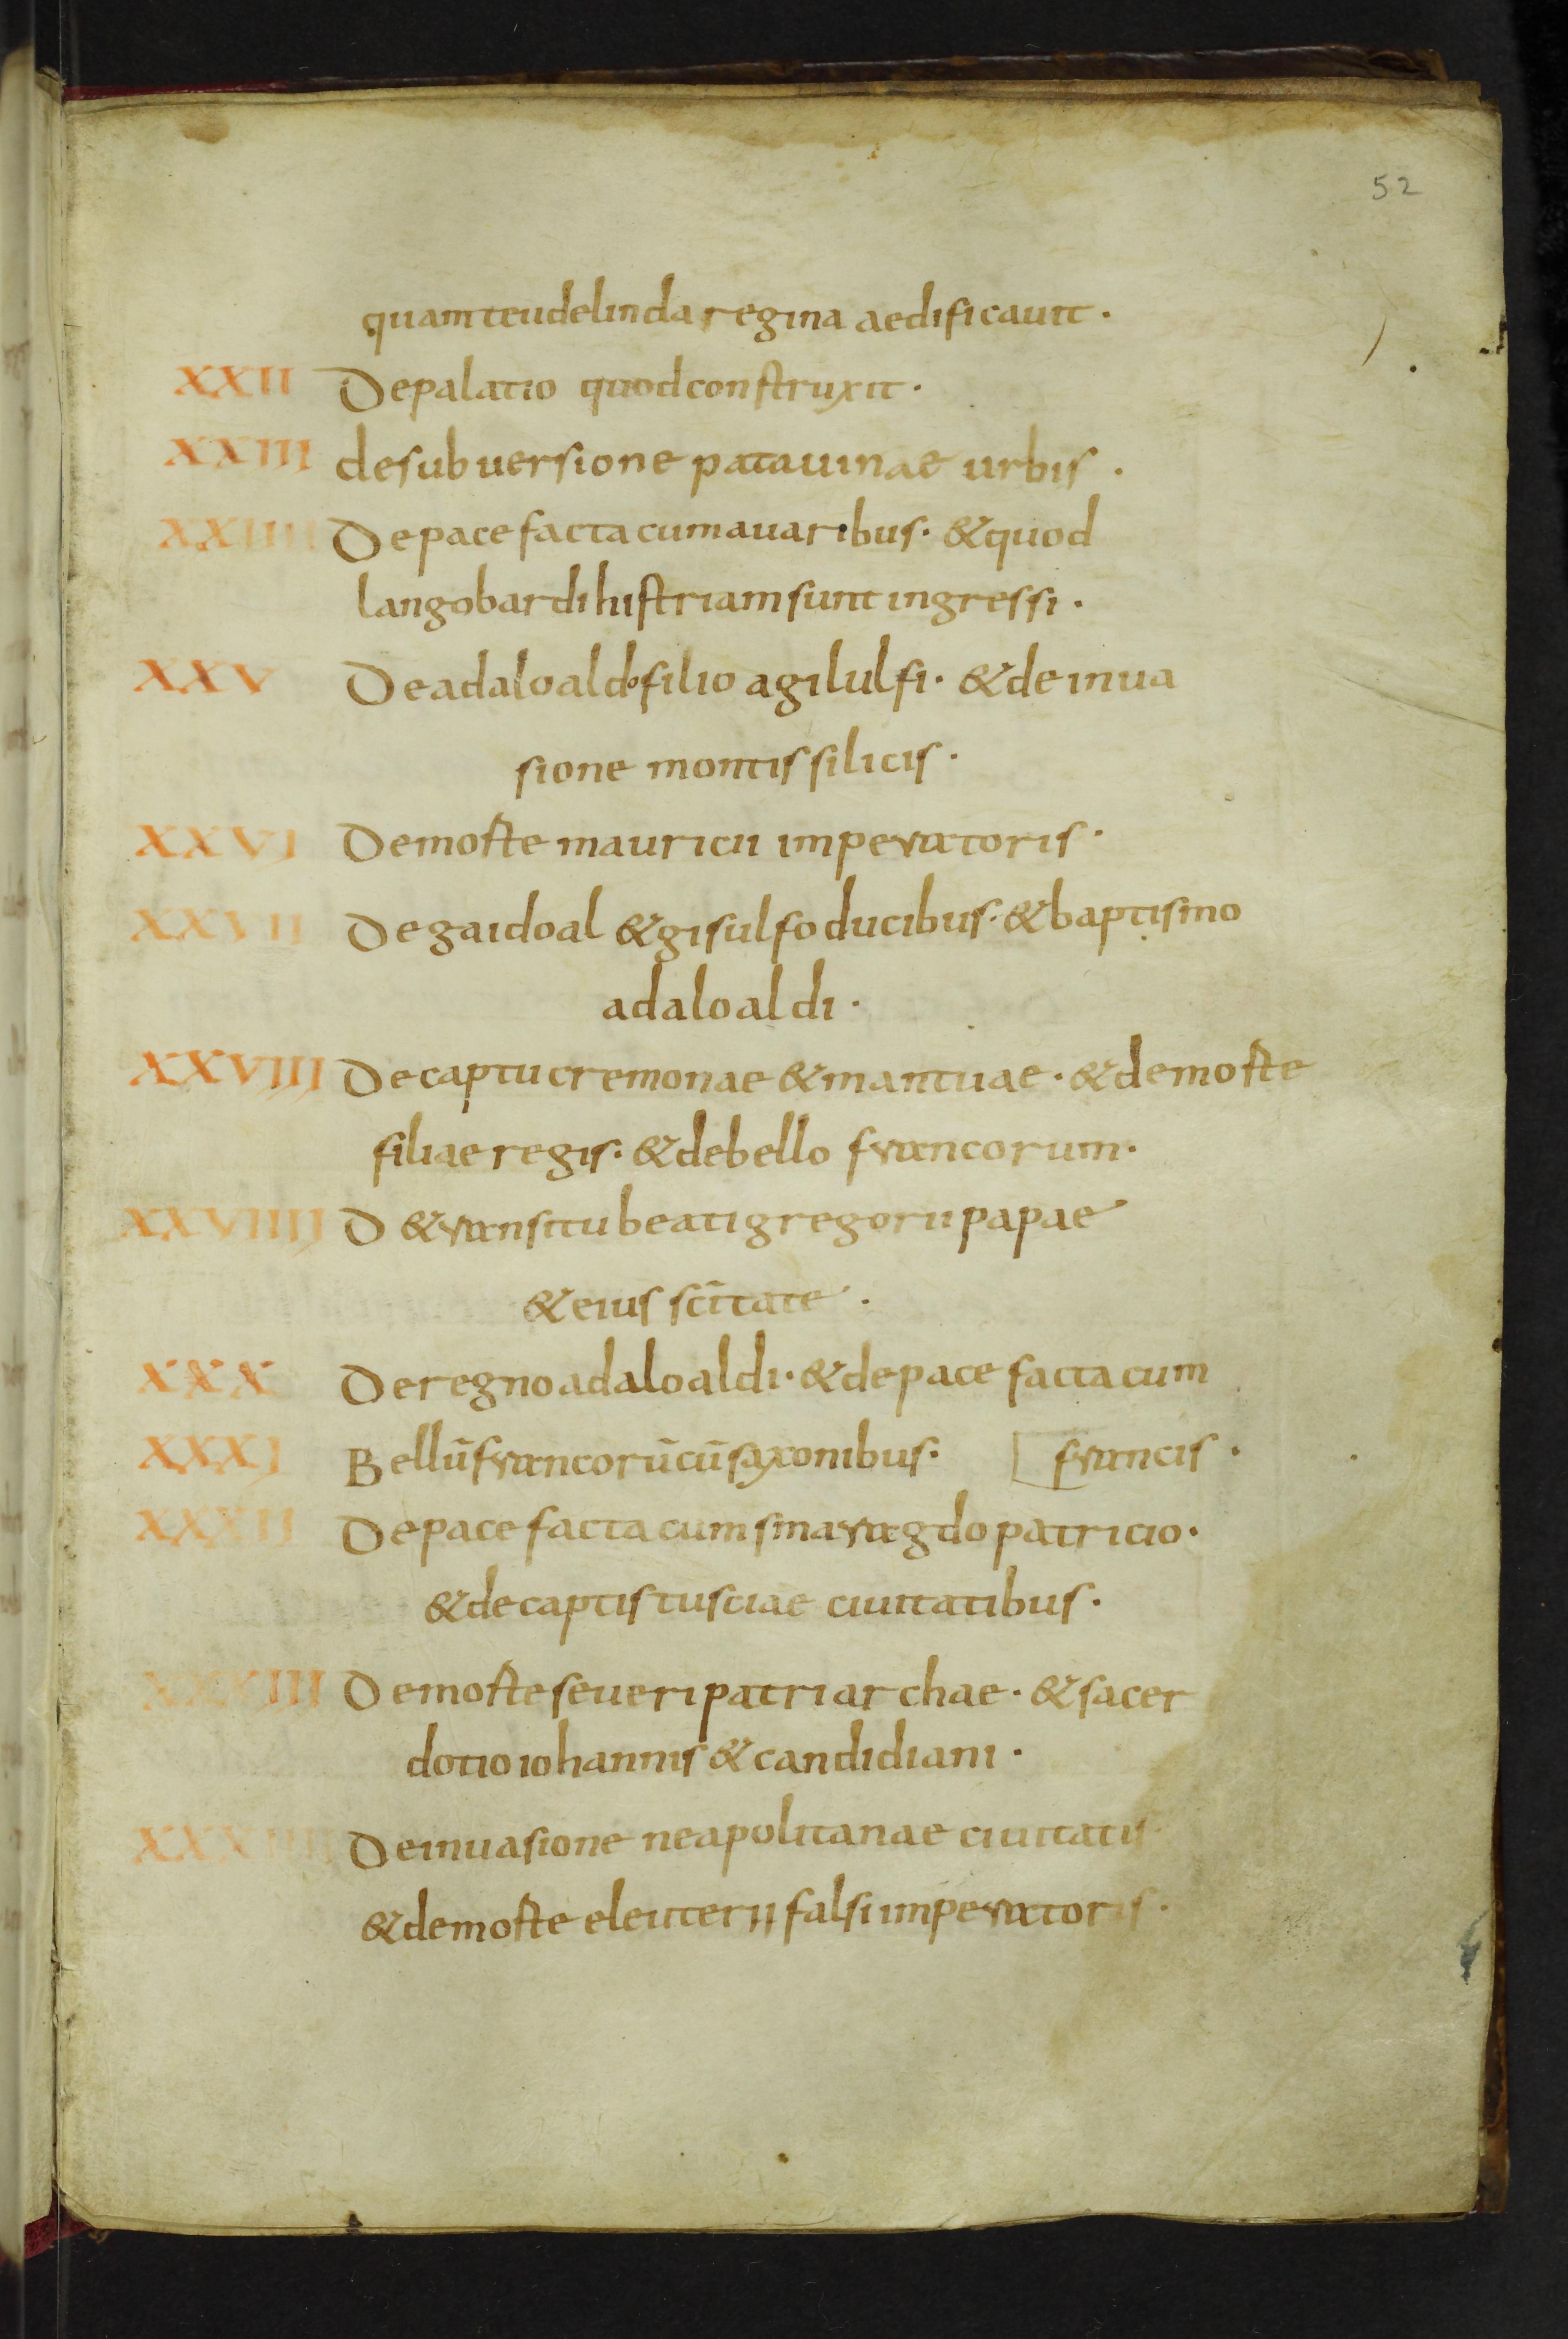 52
quam teudelinda regina aedificauit.
XXII De palatio quod construxit.
XXIII de subuersione patauinae urbis.
XXIIII De pace facta cum auaribus. & quod
langobardi histriam sunt ingressi.
XXV De adaloaldo filio agilulfi. & de inua
sione montis silicis.
XXVI De morte mauricii imperatoris.
XXVII De gaidoal & gisulfo ducibus. & baptismo
adaloaldi.
XXVIII De captu cremonae & mantuae. & de morte
filiae regis. & de bello francorum.
XXVIIII D& ransitu beati gregorii papae
& eius sc̄itate.
XXX De regno adaloaldi. & de pace facta cum
XXXI Bellū francorū cū saxonibus. francis.
XXXII De pace facta cum smaragdo patricio.
& de captis tusciae ciuitatibus.
XXXIII De morte seueri patriarchae. & sacer
dotio iohannis & candidiani.
XXXIIII De inuasione neapolitanae ciuitatis
& de morte eleuterii falsi imperatoris.